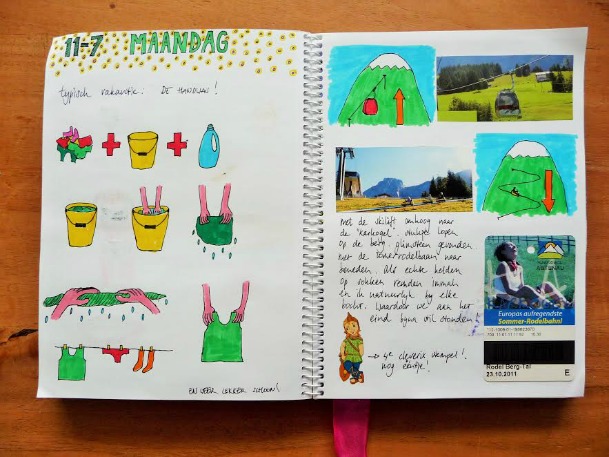 11-7 MAANDAG
typisch vakantie: DE HANDWAS!
EN WEER LEKKER SCHOON!
met de skilift omhoog naar
de "karkogel". stukje lopen
op de berg, gevonden
met de zomerrodelbaan naar
beneden. als echte helden
remden
en ik natuurlijk bij elke
bocht. waardoor we aan het
eind bijna stil stonden!
→ 4e stempel!
nog eentje!
ABTENAU
Europas aufregendste
Sommer-Rodelbahn!
Rodel Berg-Tal
23.10.2011 E